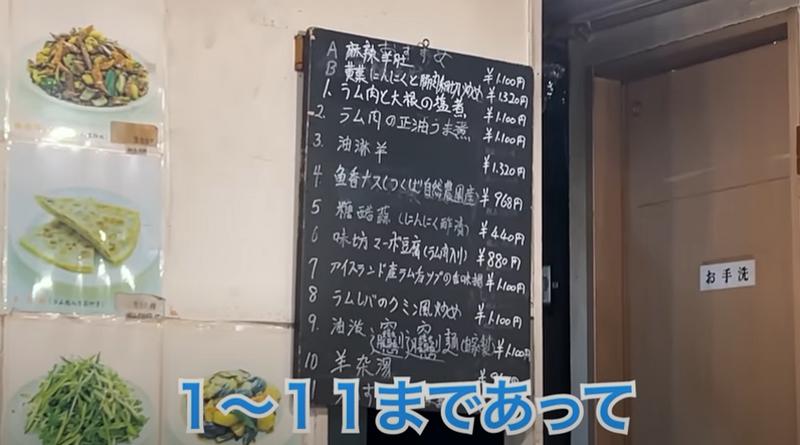 おすすめ
A 麻辣羊肚 ¥1.100円
B 黄葉にんにくと豚肉炒め ¥1.320円
1. ラム肉と大根の塩煮 ¥1.100円
2. ラム肉の正油うま煮 ¥1.100円
3. 油淋羊 ¥1.320円
4. 魚香ナス(つくば自然農園産) ¥968円
5 糖醋蒜(にんにく酢漬) ¥440円
6 味坊マーボ豆腐(ラム肉入り) ¥880円
7 アイスランド産ラムチップの香味揚 ¥1.100円
8 ラムレバのクミン風炒め ¥1.100円
9. 油泼𰻞𰻞麺(自家製) ¥1.100円
10 羊杂湯
お手洗
1〜11まであって